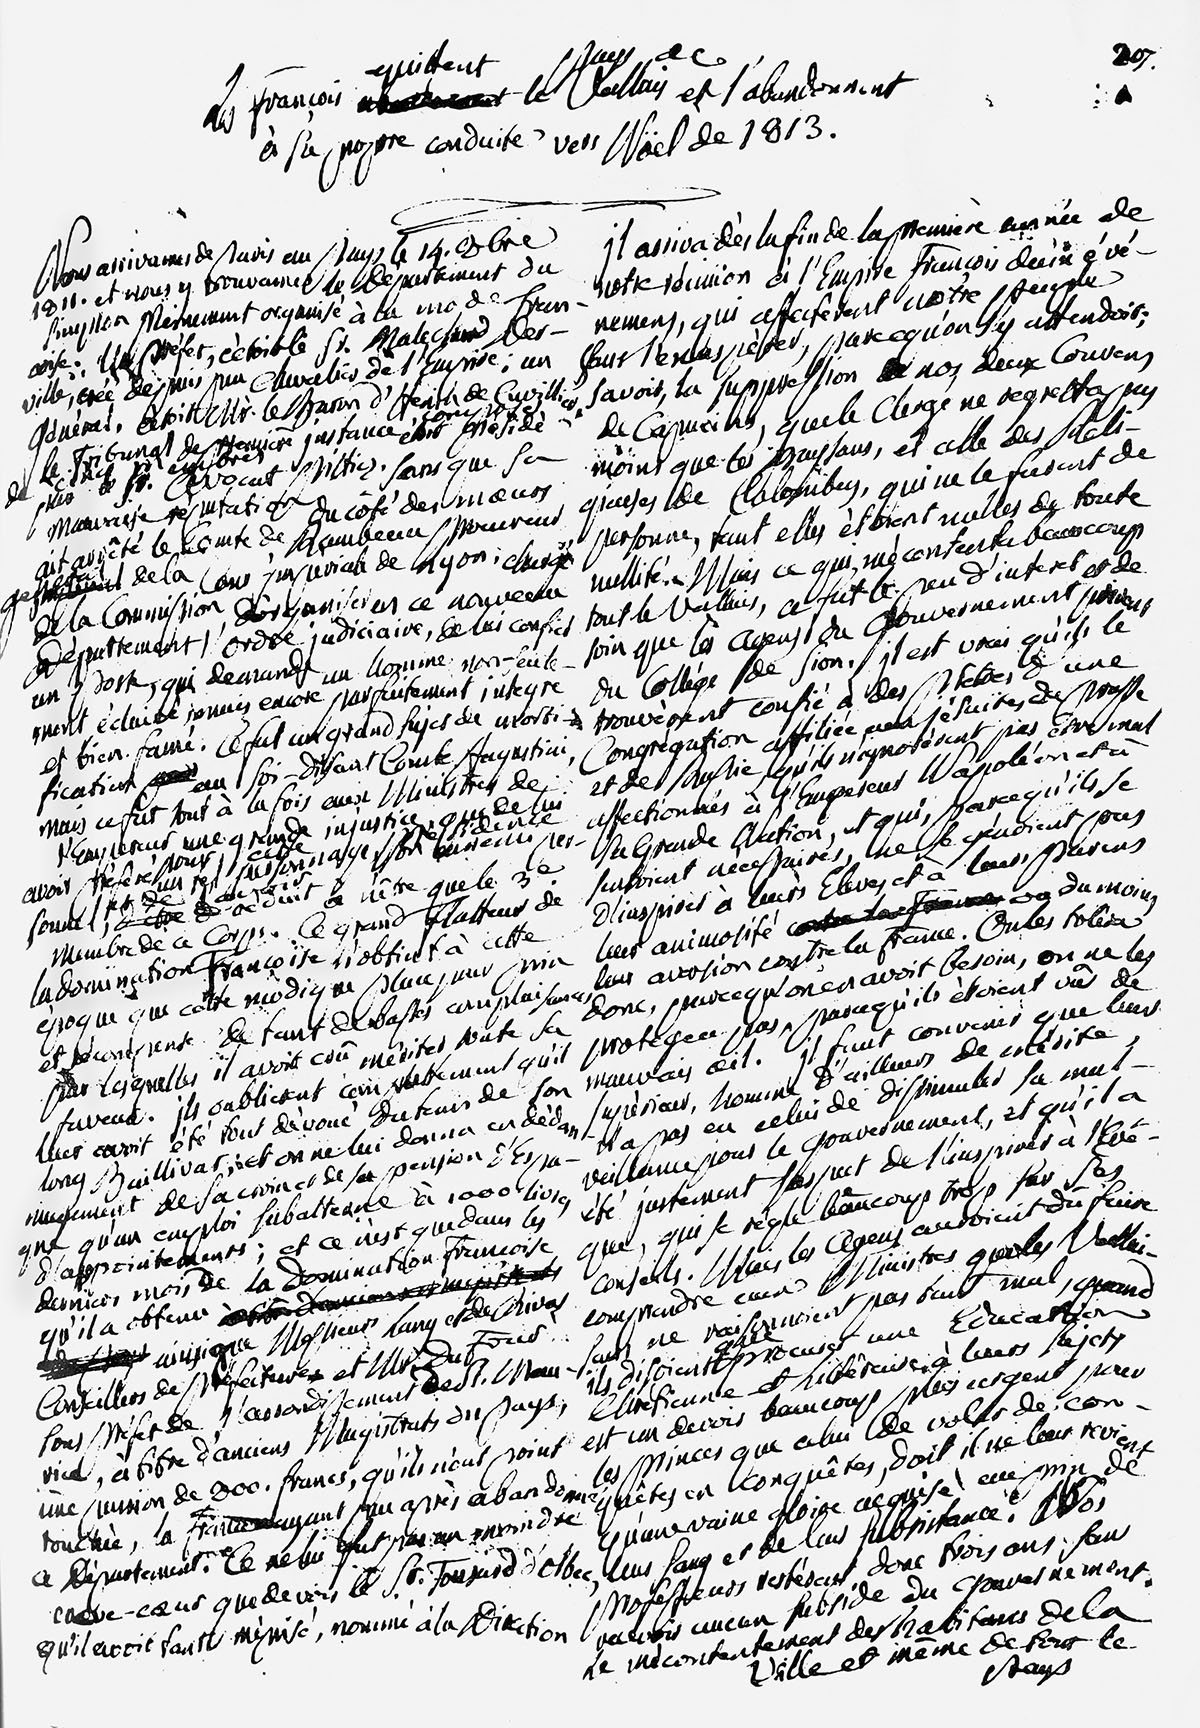 207.
quittent Pays de
Les François le Vallais et l'abandonnent
à sa propre conduite vers Nöel de 1813.
Nous arrivames de Paris au Pays le 14. 8bre
1811. et nous y trouvames le département du
Simplon pleinement organisé à la mode Fran-
çoise: Un Préfet, c'étoit le Sr. Derville Maleschard
ville, créé depuis peu Chevalier de l'Empire; un
Général, c'étoit Mr. le Baron d'Henin de Cuvilliers,
le Tribunal de première instance étoit présidé
Sr. Avocat Pittier. sans que sa
mauvaise réputation du côté des mœurs
ait arrêté le Comte de Rambeau Procureur
général de la Cour impériale de Lyon; chargé
de la Commission, d'organiser en ce nouveau
département l'ordre judiciaire, de lui confier
un Poste, qui demande un homme non-seule-
ment éclairé, mais encore parfaitement intègre
et bien famé. Ce fut un grand sujet de morti-
fication au soi-disant Comte Augustini,
mais ce fut tout à la fois aux Ministres de
l'Empereur une grande injustice, que de lui
avoir préféré pour cette Présidence
un tel personnage, son ennemi per-
sonnel, réduit à n'être que le 3e
membre de ce Corps. Ce grand flatteur de
la domination Françoise n'obtint à cette
époque que cette modique place pour prix
et récompense de tant de basses complaisances
par lesquelles il avoit crû mériter toute sa
faveur. ils oublierent complettement qu'il
leur avoit été tout dévoué du tems de son
long Baillivat; et on ne lui donna en dédom-
magement de sa croix et de sa pension d'Espa-
gne qu'un emploi subalterne à 1000 livres
d'appointements; et ce n'est que dans les
derniers mois de la domination Françoise
qu'il a obtenu
ainsi que Messieurs Lang et de Rivaz
Conseillers de Préfecture et Mr. Du Four
sous Préfet de l'arrondissement de St. Mau-
rice, à titre d'anciens Magistrats du Pays,
une pension de 800. francs, qu'ils n'ont point
touchée, la France ayant peu après abandonné
ce Département. Ce ne lui fut pas un moindre
creve-cœur que de voir le Sr. Tousard d'Olbec,
qu'il avoit tant méprisé, nommé à la Direction
il arriva dès la fin de la première année de
notre réunion à l'Empire François deux évé-
nemens, qui affecterent notre Peuple
sans l'exaspérer, parcequ'on s'y attendoit;
savoir, la suppression de nos deux Couvens
de Capucins, que le Clergé ne regretta pas
moins que les paysans, et celle des Reli-
gieuses de Collombey, qui ne le furent de
personne, tant elles étoient nulles de toute
nullité. Mais ce qui mécontenta beaucoup
tout le Vallais, ce fut le peu d'interet et de
soin que les agens du Gouvernement prirent
du Collége de Sion. il est vrai qu'ils le
trouvèrent confié à des Prêtres d'une
Congrégation affiliée aux Jésuites de Prusse
et de Russie, qu'ils n'ignoroient pas être mal
affectionnés à l'Empereur Napoléon et à
sa Grande Nation, et qui, parcequ'ils se
savoient nécessaires, ne se gênoient pas
d'inspirer à leurs Elèves et à leurs parens
leur animosité contre la France ou du moins
leur aversion contre la France. On les toléra
donc, parcequ'on en avoit besoin, on ne les
protégea pas, parcequ'ils étoient vûs de
mauvais œil. il faut convenir que leur
supérieur, homme d'ailleurs de mérite,
n'a pas eu celui de dissimuler sa mal-
veillance pour le gouvernement, et qu'il a
été justement suspect de l'inspirer à l'Evê-
que, qui se règle beaucoup trop sur ses
conseils. Mais les Agens auroient dû faire
comprendre aux Ministres que les Vallai-
sans ne raisonnoient pas tant mal, quand
ils disoient que procurer une Education
Chrétienne et Littéraire à leurs sujets
est un devoir beaucoup plus urgent pour
les Princes que celui de voler de con-
quêtes en conquêtes, dont il ne leur revient
qu'une vaine gloire acquise au prix de
leur sang et de leur subsistance. Nos
Professeurs resterent donc trois ans sans
recevoir aucun subside du Gouvernement.
Le mécontentement des habitans de la
Ville et même de tout le
Pays